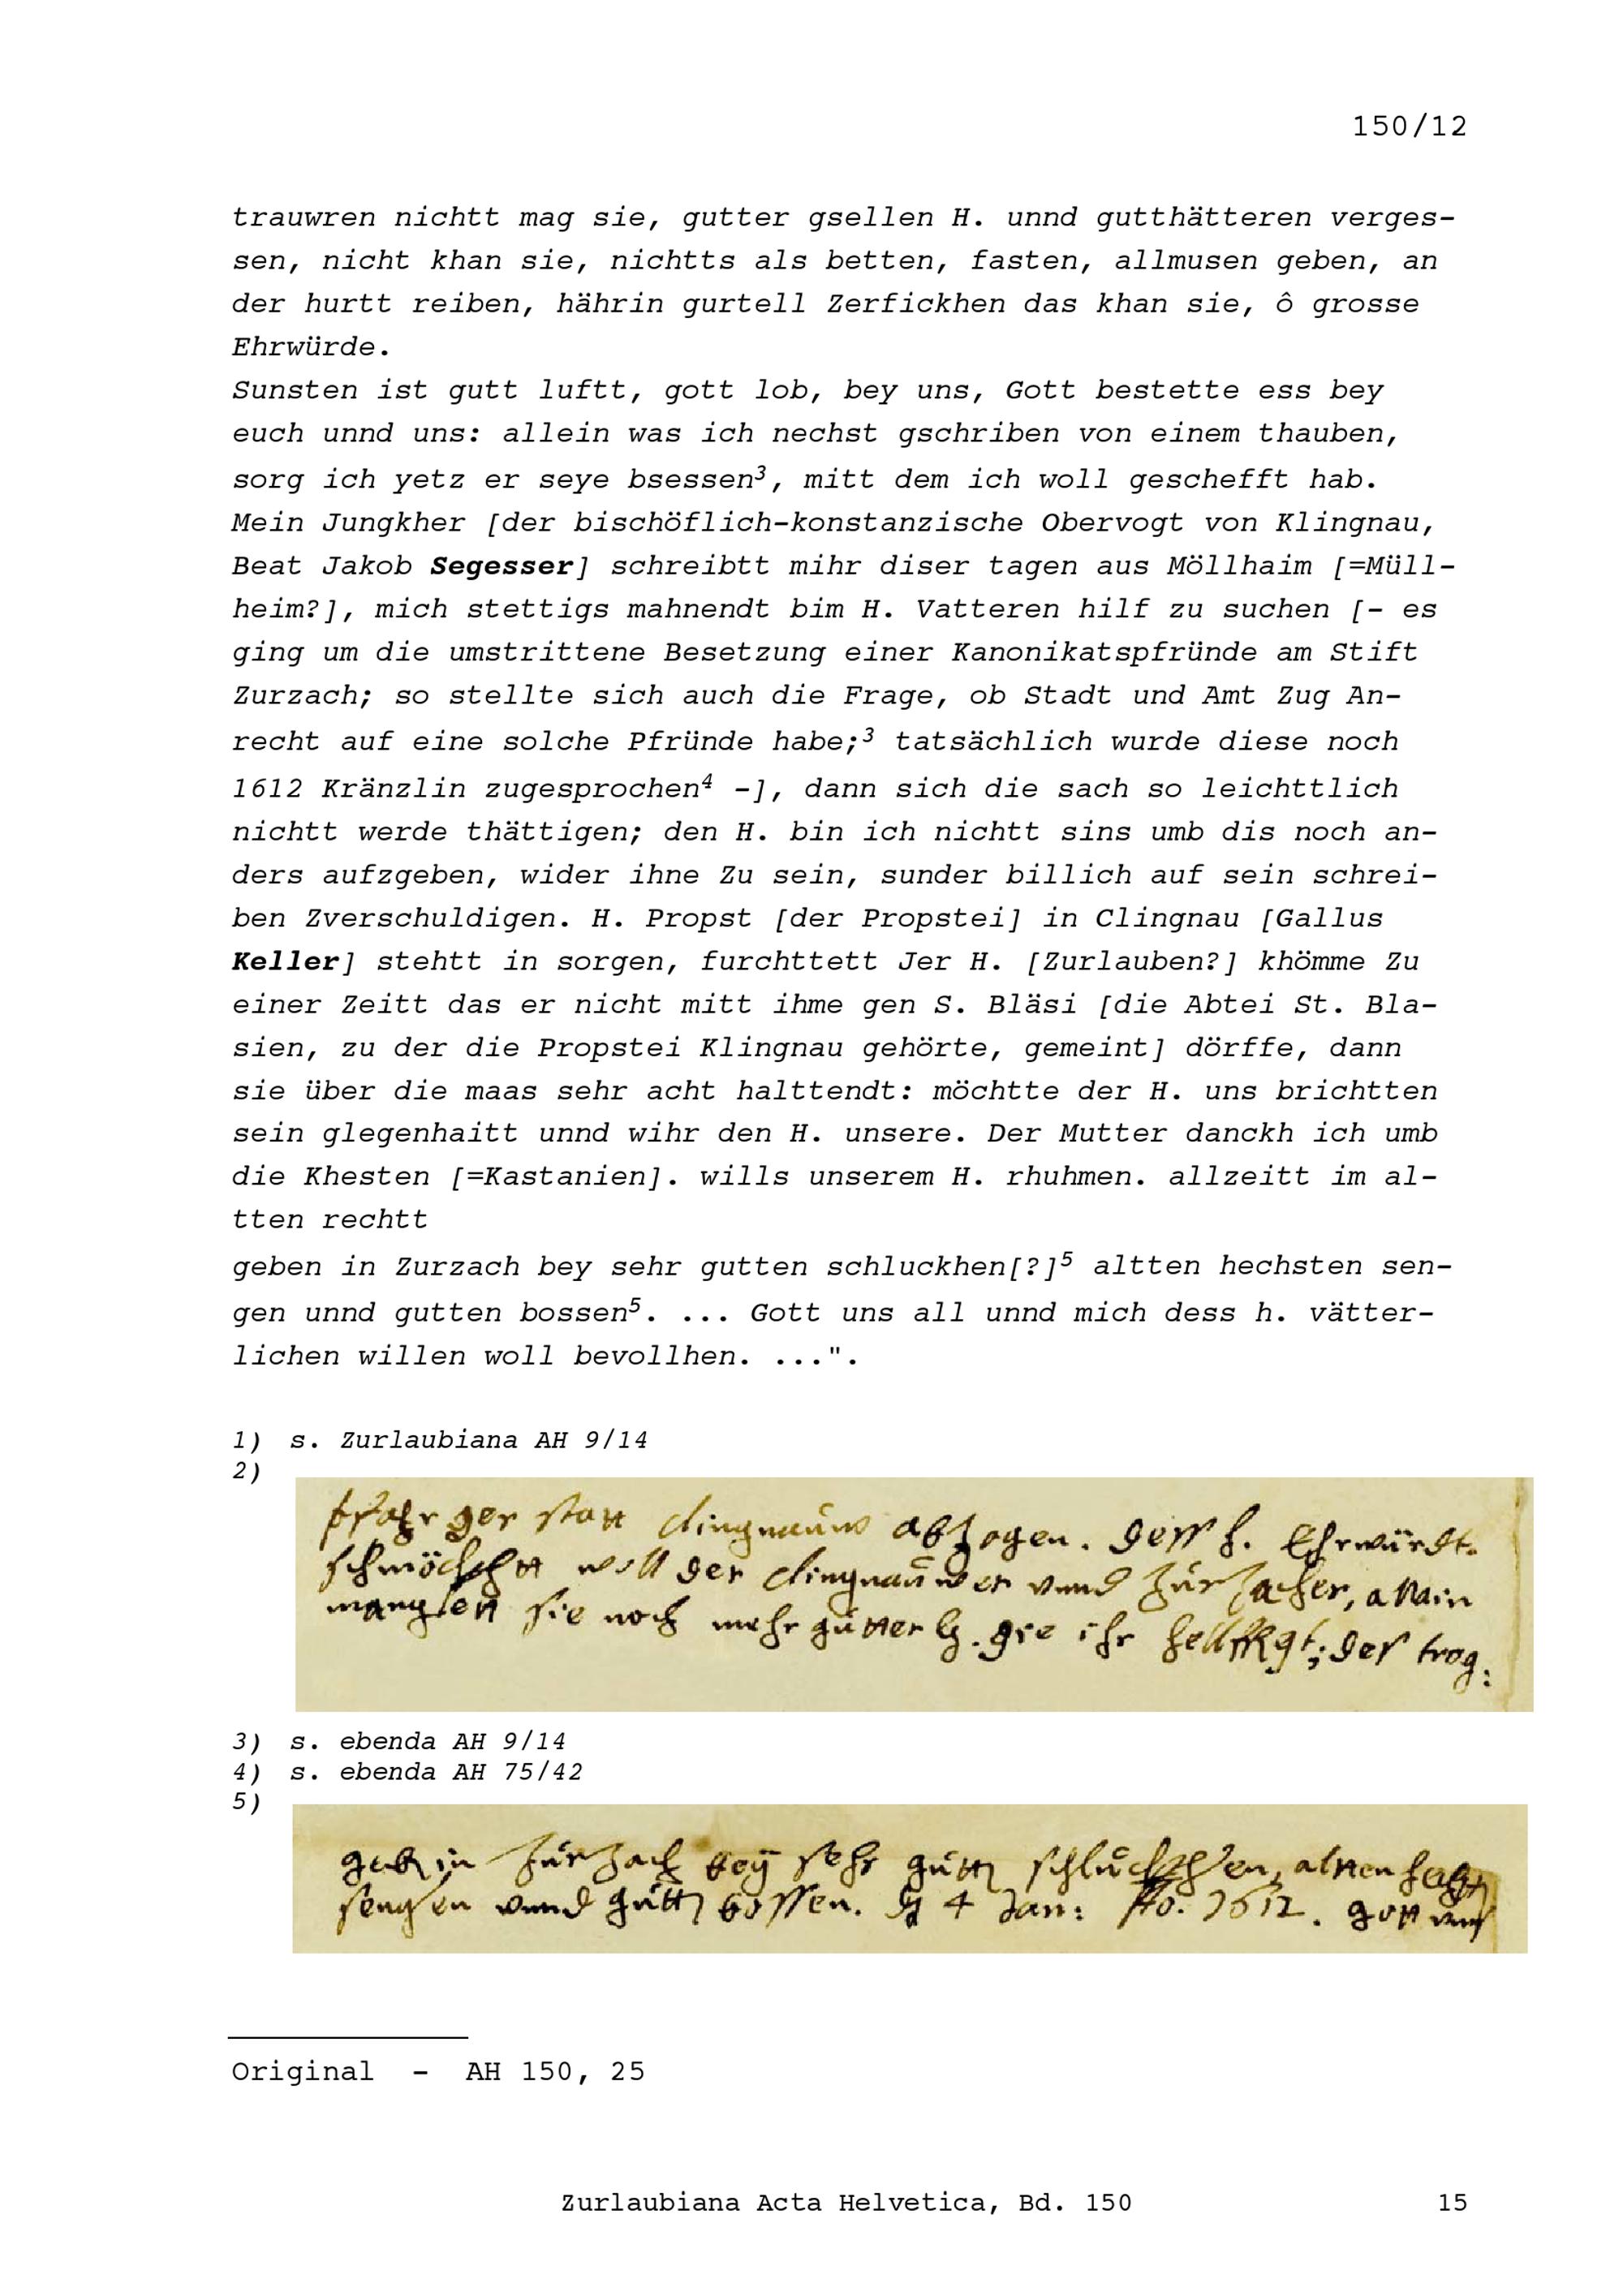 150/12
trauwren nichtt mag sie, gutter gsellen H. unnd gutthätteren verges-
sen, nicht khan sie, nichtts als betten, fasten, allmusen geben, an
der hurtt reiben, hährin gurtell Zerfickhen das khan sie, ô grosse
Ehrwürde.
Sunsten ist gutt luftt, gott lob, bey uns, Gott bestette ess bey
euch unnd uns: allein was ich nechst gschriben von einem thauben,
sorg ich yetz er seye bsessen³, mitt dem ich woll geschefft hab.
Mein Jungkher [der bischöflich-konstanzische Obervogt von Klingnau,
Beat Jakob Segesser] schreibtt mihr diser tagen aus Möllhaim [=Müll-
heim?], mich stettigs mahnendt bim H. Vatteren hilf zu suchen [- es
ging um die umstrittene Besetzung einer Kanonikatspfründe am Stift
Zurzach; so stellte sich auch die Frage, ob Stadt und Amt Zug An-
recht auf eine solche Pfründe habe;³ tatsächlich wurde diese noch
1612 Kränzlin zugesprochen⁴ -], dann sich die sach so leichttlich
nichtt werde thättigen; den H. bin ich nichtt sins umb dis noch an-
ders aufzgeben, wider ihne Zu sein, sunder billich auf sein schrei-
ben Zverschuldigen. H. Propst [der Propstei] in Clingnau [Gallus
Keller] stehtt in sorgen, furchttett Jer H. [Zurlauben?] khömme Zu
einer Zeitt das er nicht mitt ihme gen S. Bläsi [die Abtei St. Bla-
sien, zu der die Propstei Klingnau gehörte, gemeint] dörffe, dann
sie über die maas sehr acht halttendt: möchtte der H. uns brichtten
sein glegenhaitt unnd wihr den H. unsere. Der Mutter danckh ich umb
die Khesten [=Kastanien]. wills unserem H. rhuhmen. allzeitt im al-
tten rechtt
geben in Zurzach bey sehr gutten schluckhen[?]⁵ altten hechsten sen-
gen unnd gutten bossen⁵. ... Gott uns all unnd mich dess h. vätter-
lichen willen woll bevollhen. ...".
1) s. Zurlaubiana AH 9/14
2)
der statt clingnauw abzogen. dess h. Ehrwürdt.
woll der clingnauwer unnd Zurzacher, allain
manglen sie noch mehr gutter die ihr der trog:
3) s. ebenda AH 9/14
4) s. ebenda AH 75/42
5)
geb in Zurzach bey sehr gutten schluckhen, altten
sengen unnd gutten bossen. 4 Jan: Ao. 1612. gott uns
Original - AH 150, 25
Zurlaubiana Acta Helvetica, Bd. 150 15